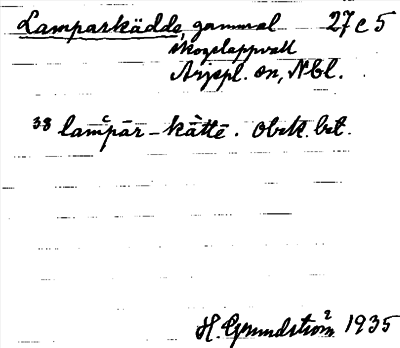 Lamparkädde, gammal 27c5
skogslappvall
Arjepl. sn, Nbl.
38 lampār-kàttē. Obek. bet.
H. Grundström 1935